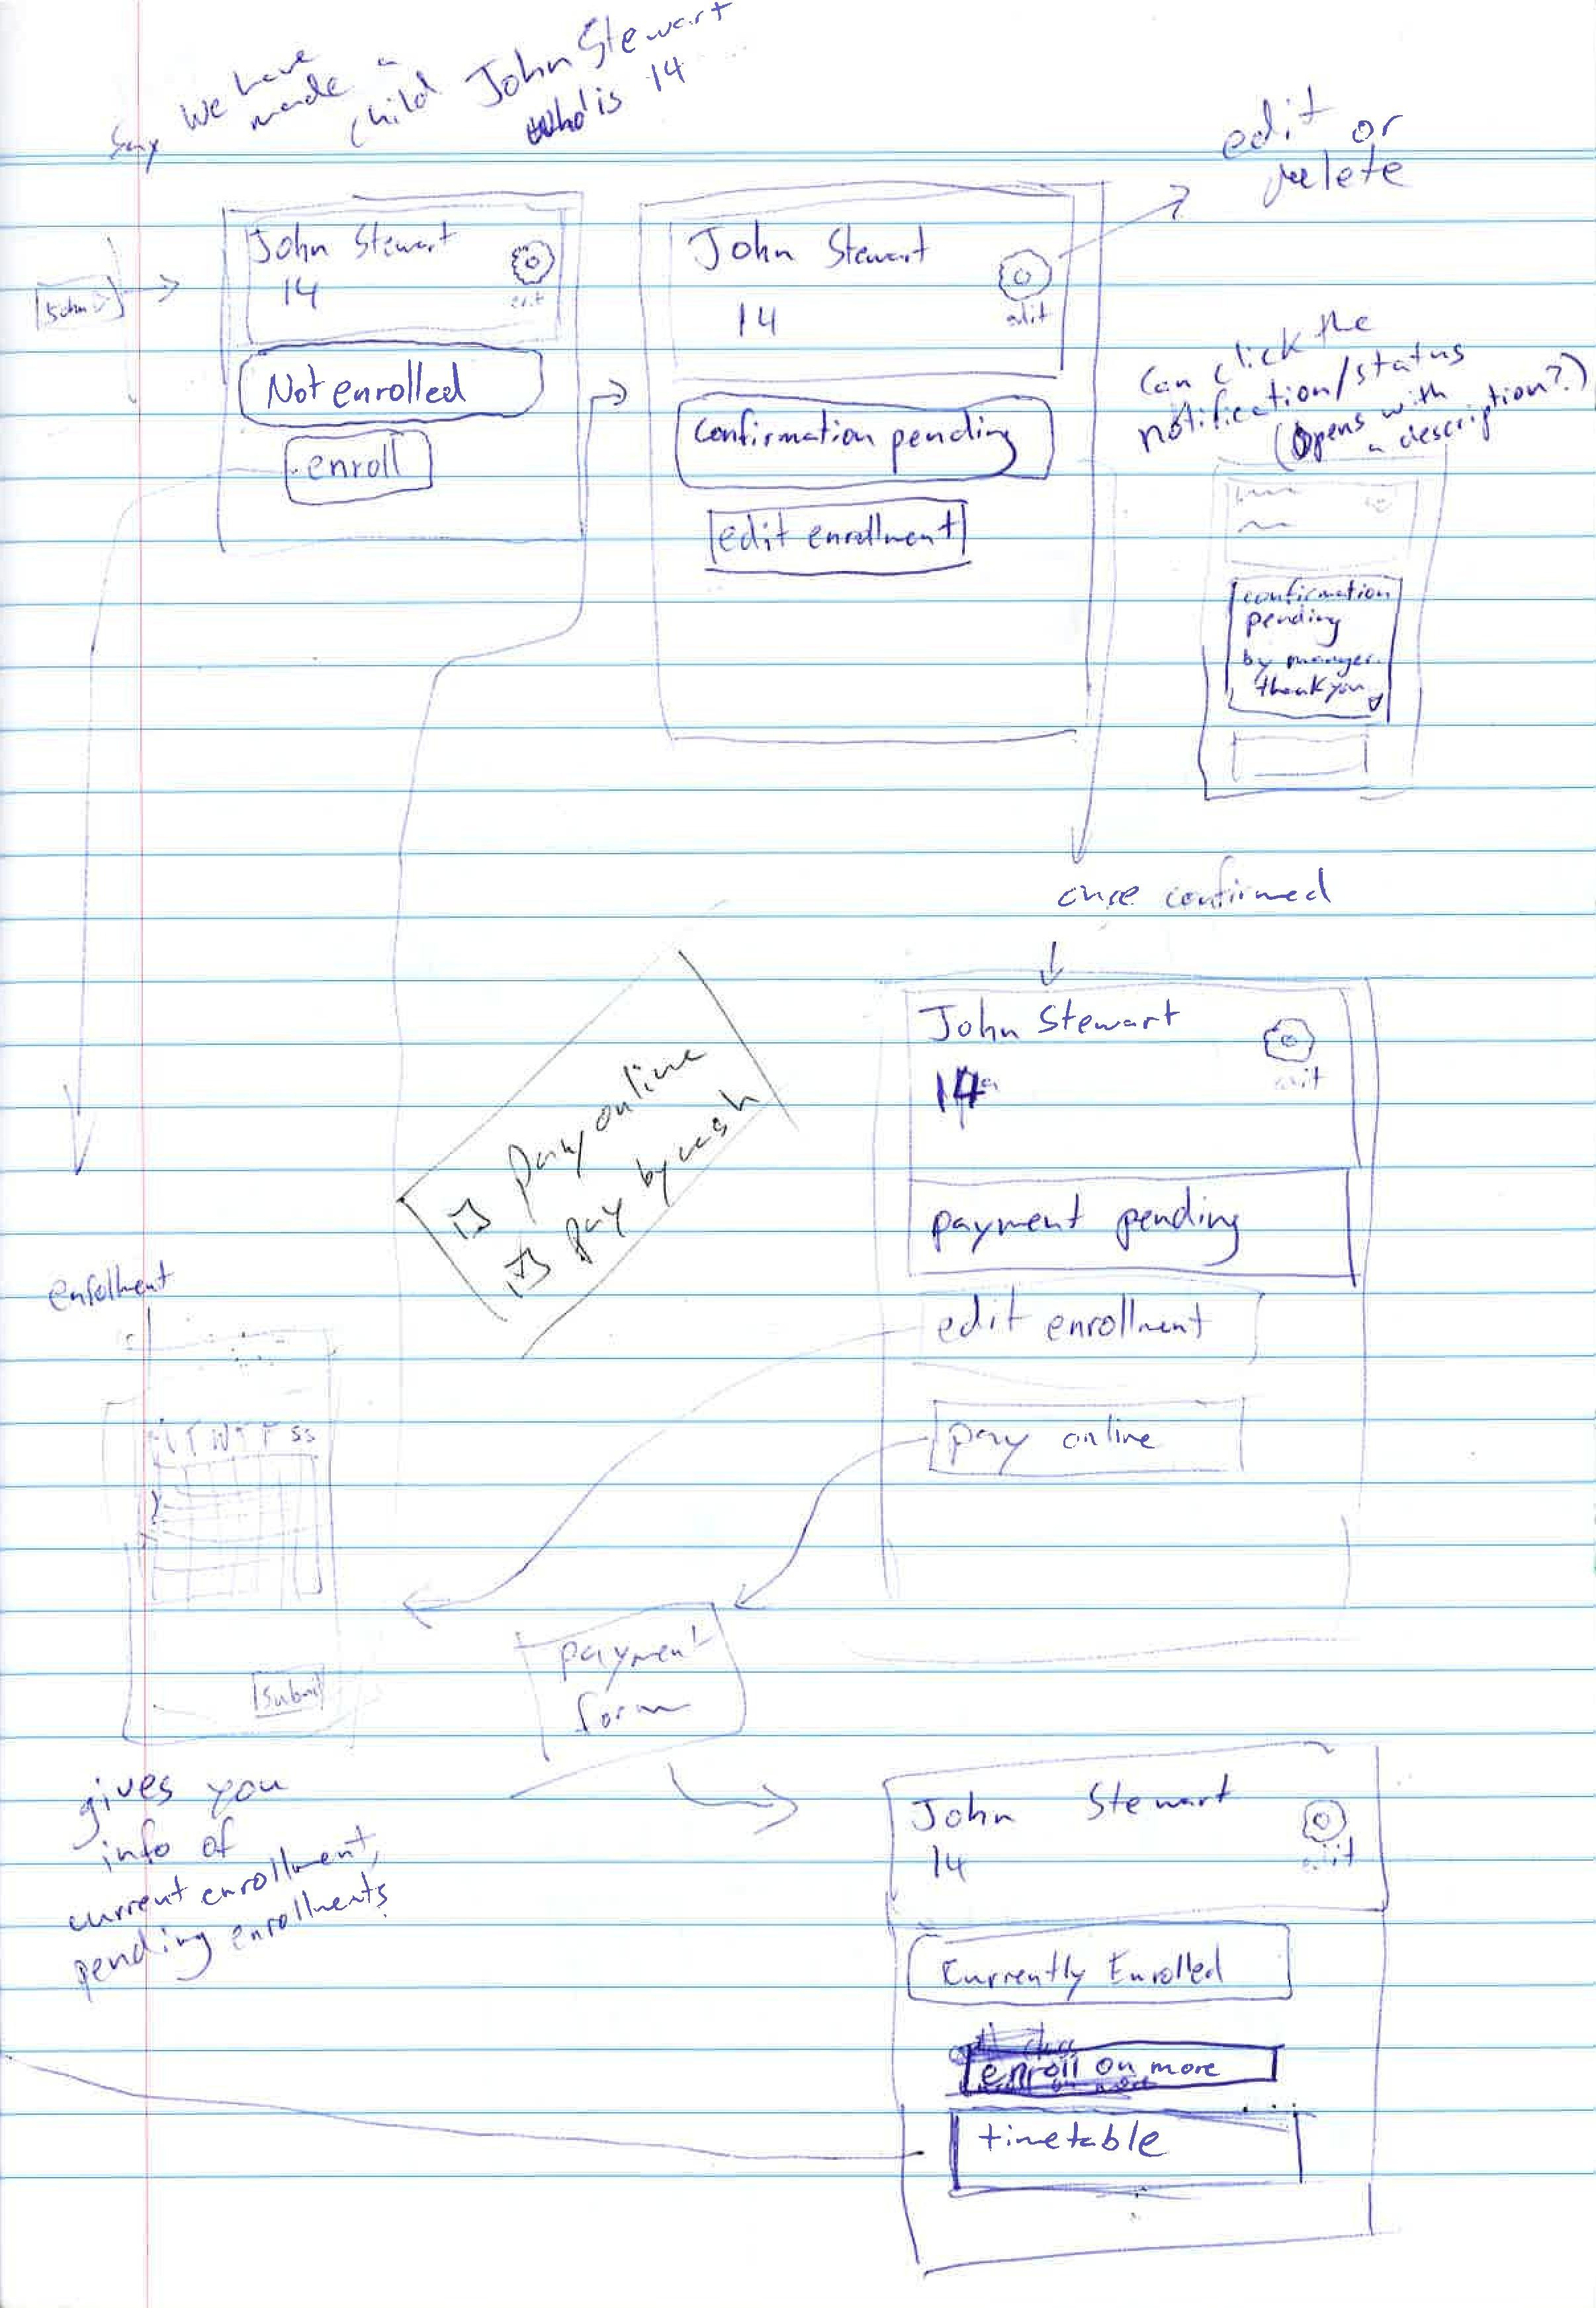 Say we have
made a
child John Stewart
who is 14
edit or
delete
John Stewart
14
edit
Not enrolled
enroll
John Stewart
14
edit
Confirmation pending
edit enrollment
Can click the
notification/status
(Opens with
a description?)
confirmation
pending
by manager.
thank you
once confirmed
John Stewart
14
edit
payment pending
edit enrollment
pay online
pay online
pay by cash
enrollment
T W T F S S
Submit
payment
form
gives you
info of
current enrollment,
pending enrollments
John Stewart
14
edit
Currently Enrolled
enroll on more
timetable